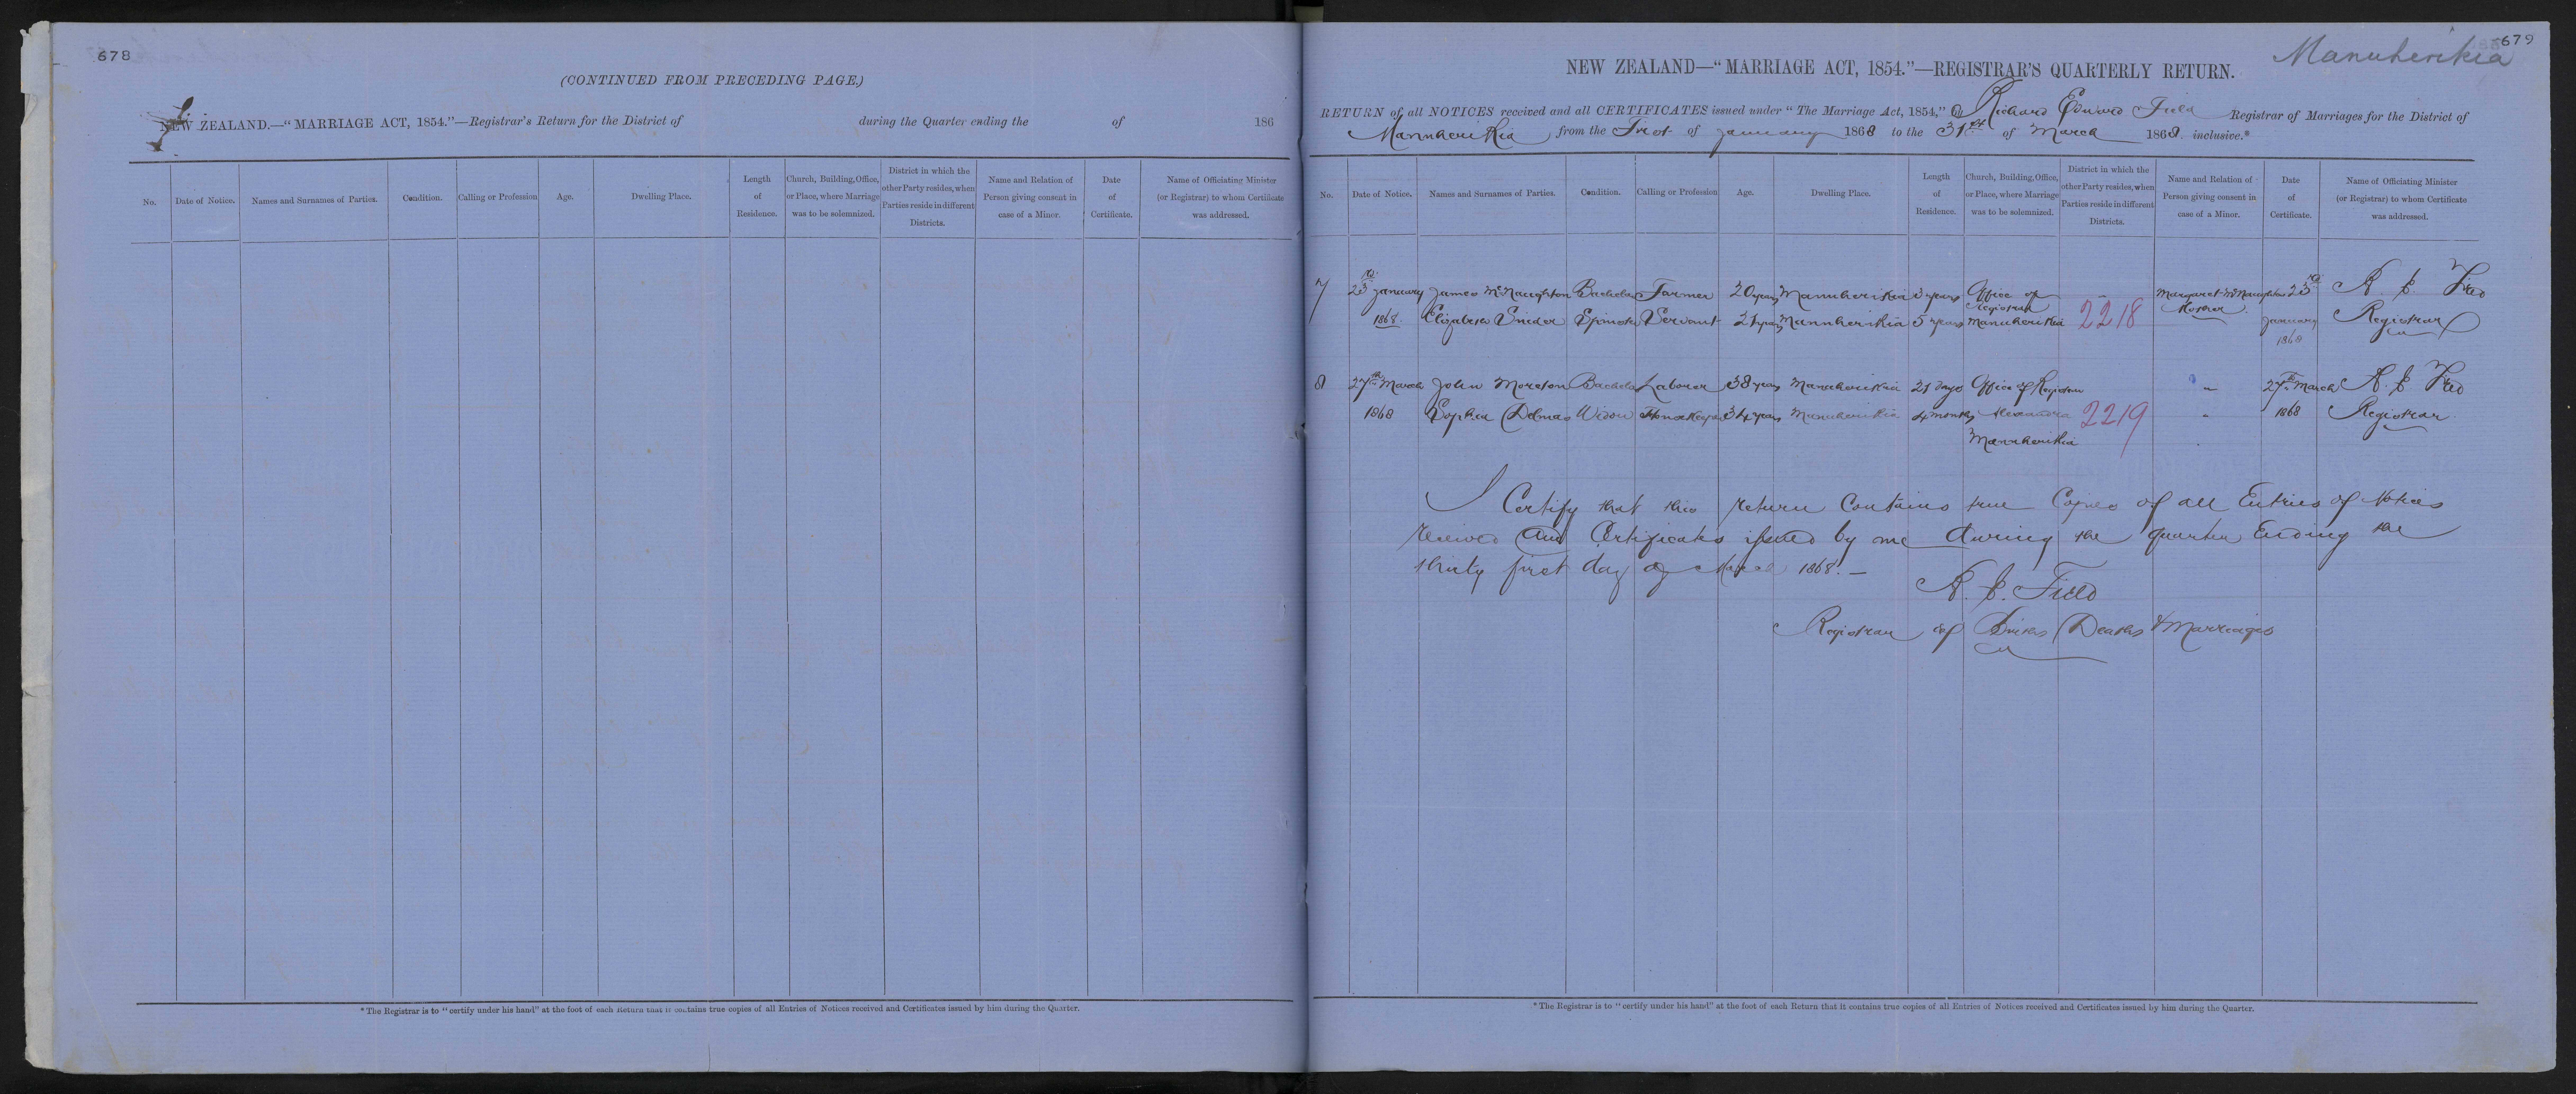 678
(CONTINUED FROM PRECEDING PAGE.)
NEW ZEALAND.—"MARRIAGE ACT, 1854."—Registrar's Return for the District of during the Quarter ending the of 186
No. Date of Notice. Names and Surnames of Parties. Condition. Calling or Profession Age. Dwelling Place. Length of Residence. Church, Building, Office, or Place, where Marriage was to be solemnized. District in which the other Party resides, when Parties reside in different Districts. Name and Relation of Person giving consent in case of a Minor. Date of Certificate. Name of Officiating Minister (or Registrar) to whom Certificate was addressed.
*The Registrar is to "certify under his hand" at the foot of each Return that it contains true copies of all Entries of Notices received and Certificates issued by him during the Quarter.
679
Manuherikia
NEW ZEALAND—"MARRIAGE ACT, 1854."—REGISTRAR'S QUARTERLY RETURN.
RETURN of all NOTICES received and all CERTIFICATES issued under "The Marriage Act, 1854," by Richard Edward Field Registrar of Marriages for the District of
Manuherikia from the First of January 1868 to the 31st of March 1868. inclusive.*
No. Date of Notice. Names and Surnames of Parties. Condition. Calling or Profession Age. Dwelling Place. Length of Residence. Church, Building, Office, or Place, where Marriage was to be solemnized. District in which the other Party resides, when Parties reside in different Districts. Name and Relation of Person giving consent in case of a Minor. Date of Certificate. Name of Officiating Minister (or Registrar) to whom Certificate was addressed.
7 23rd January James McNaughton Bachelor Farmer 20 years Manuherikia 3 years Office of Registrar Margaret McNaughton 23rd R. E. Field
1868. Elizabeth Spinster Servant 21 years Manuherikia 5 years Manuherikia 2218 Mother January 1868 Registrar
8 27th March John Moreton Bachelor Laborer 38 years Manuherikia 21 days Office of Registrar " 27th March R. E. Field
1868 Sophia Delmas Widow Housekeeper 34 years Manuherikia 4 months Alexandra 2219 " 1868 Registrar
Manuherikia
I Certify that this return Contains true Copies of all Entries of Notices
received and Certificates issued by me during the quarter Ending the
thirty first day of March 1868.—
R. E. Field
Registrar of Births Deaths & Marriages
*The Registrar is to "certify under his hand" at the foot of each Return that it contains true copies of all Entries of Notices received and Certificates issued by him during the Quarter.